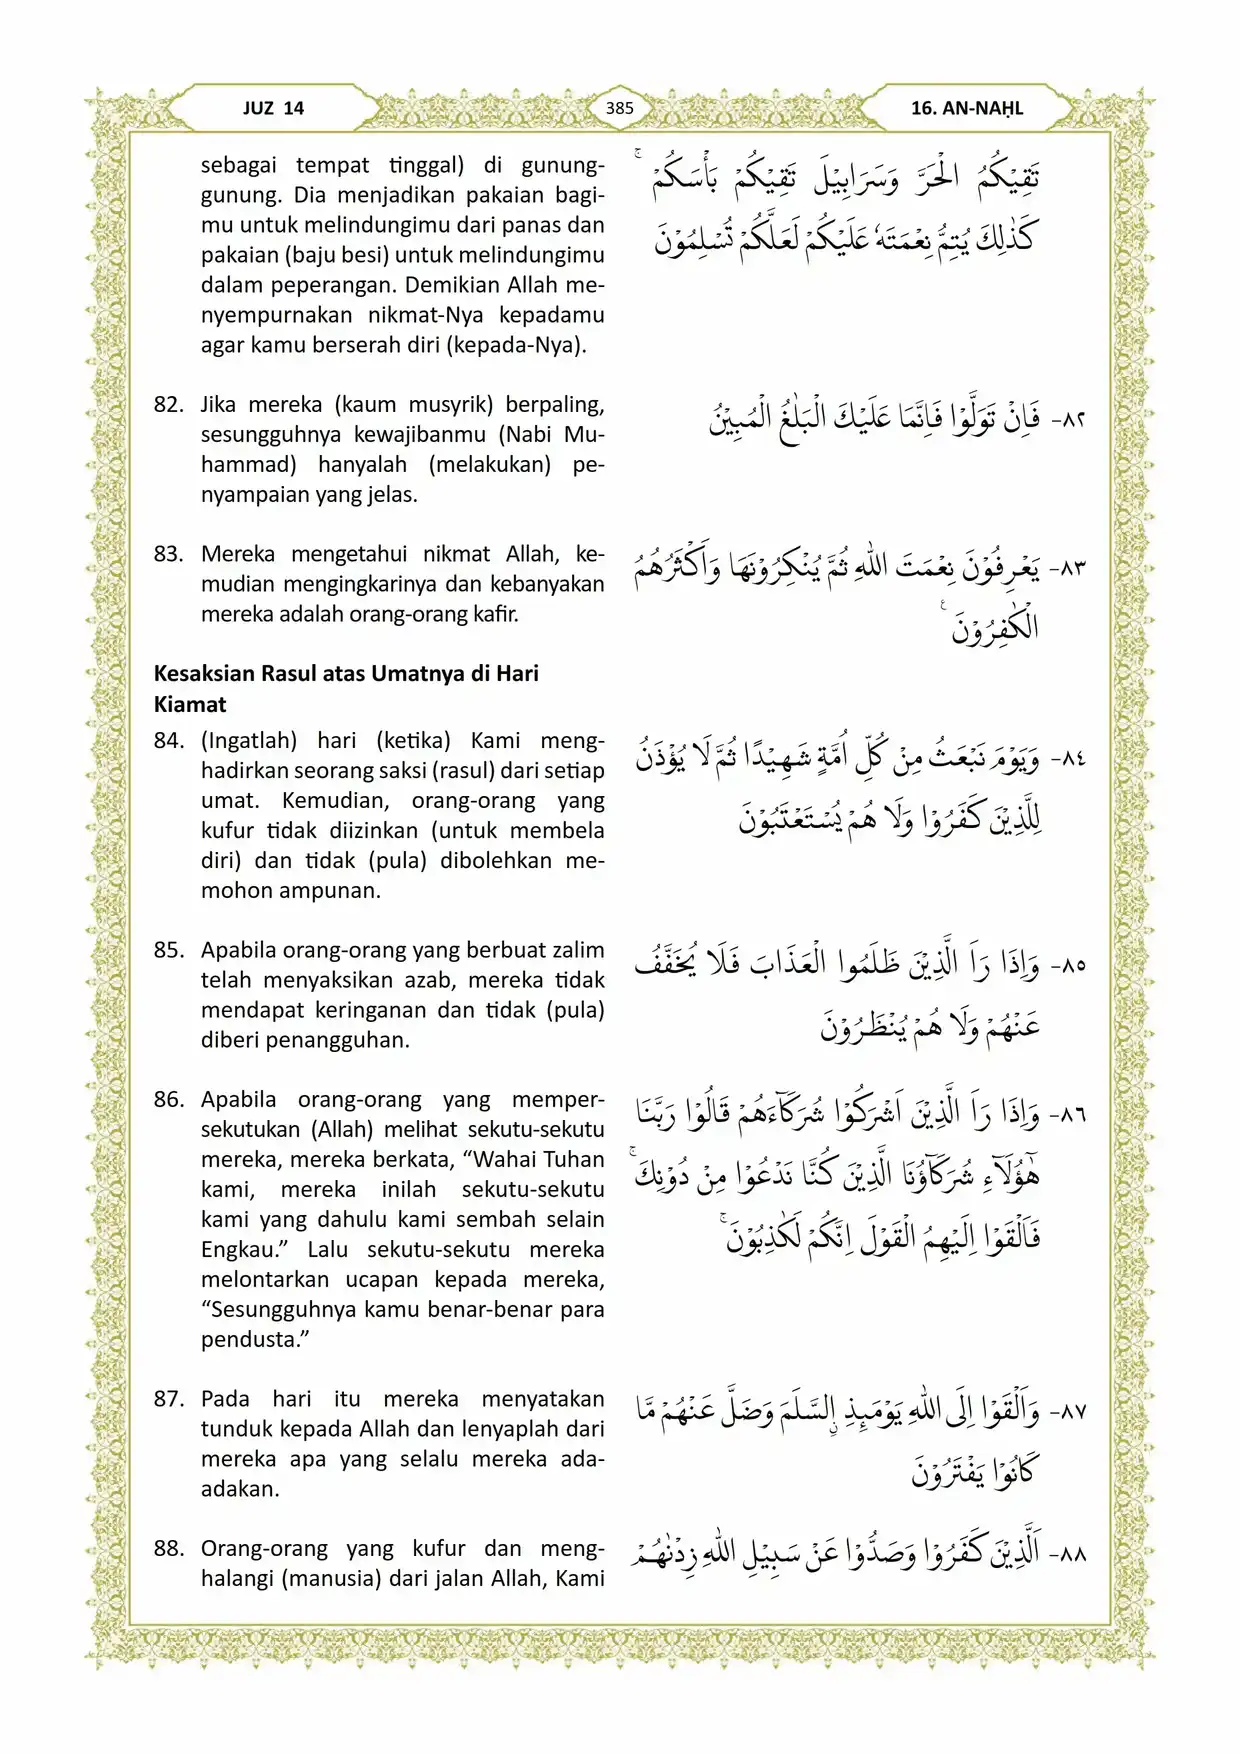 JUZ 14
385
16. AN-NAḤL
sebagai tempat tinggal) di gunung-
gunung. Dia menjadikan pakaian bagi-
mu untuk melindungimu dari panas dan
pakaian (baju besi) untuk melindungimu
dalam peperangan. Demikian Allah me-
nyempurnakan nikmat-Nya kepadamu
agar kamu berserah diri (kepada-Nya).
تَقِيْكُمُ الْحَرَّ وَسَرَابِيْلَ تَقِيْكُمْ بَأْسَكُمْ ۚ
كَذٰلِكَ يُتِمُّ نِعْمَتَهٗ عَلَيْكُمْ لَعَلَّكُمْ تُسْلِمُوْنَ
82. Jika mereka (kaum musyrik) berpaling,
sesungguhnya kewajibanmu (Nabi Mu-
hammad) hanyalah (melakukan) pe-
nyampaian yang jelas.
٨٢- فَاِنْ تَوَلَّوْا فَاِنَّمَا عَلَيْكَ الْبَلٰغُ الْمُبِيْنُ
83. Mereka mengetahui nikmat Allah, ke-
mudian mengingkarinya dan kebanyakan
mereka adalah orang-orang kafir.
٨٣- يَعْرِفُوْنَ نِعْمَتَ اللّٰهِ ثُمَّ يُنْكِرُوْنَهَا وَاَكْثَرُهُمُ
الْكٰفِرُوْنَ ࣖ
Kesaksian Rasul atas Umatnya di Hari
Kiamat
84. (Ingatlah) hari (ketika) Kami meng-
hadirkan seorang saksi (rasul) dari setiap
umat. Kemudian, orang-orang yang
kufur tidak diizinkan (untuk membela
diri) dan tidak (pula) dibolehkan me-
mohon ampunan.
٨٤- وَيَوْمَ نَبْعَثُ مِنْ كُلِّ اُمَّةٍ شَهِيْدًا ثُمَّ لَا يُؤْذَنُ
لِلَّذِيْنَ كَفَرُوْا وَلَا هُمْ يُسْتَعْتَبُوْنَ
85. Apabila orang-orang yang berbuat zalim
telah menyaksikan azab, mereka tidak
mendapat keringanan dan tidak (pula)
diberi penangguhan.
٨٥- وَاِذَا رَاَ الَّذِيْنَ ظَلَمُوا الْعَذَابَ فَلَا يُخَفَّفُ
عَنْهُمْ وَلَا هُمْ يُنْظَرُوْنَ
86. Apabila orang-orang yang memper-
sekutukan (Allah) melihat sekutu-sekutu
mereka, mereka berkata, “Wahai Tuhan
kami, mereka inilah sekutu-sekutu
kami yang dahulu kami sembah selain
Engkau.” Lalu sekutu-sekutu mereka
melontarkan ucapan kepada mereka,
“Sesungguhnya kamu benar-benar para
pendusta.”
٨٦- وَاِذَا رَاَ الَّذِيْنَ اَشْرَكُوْا شُرَكَاۤءَهُمْ قَالُوْا رَبَّنَا
هٰٓؤُلَاۤءِ شُرَكَاۤؤُنَا الَّذِيْنَ كُنَّا نَدْعُوْا مِنْ دُوْنِكَۚ
فَاَلْقَوْا اِلَيْهِمُ الْقَوْلَ اِنَّكُمْ لَكٰذِبُوْنَۚ
87. Pada hari itu mereka menyatakan
tunduk kepada Allah dan lenyaplah dari
mereka apa yang selalu mereka ada-
adakan.
٨٧- وَاَلْقَوْا اِلَى اللّٰهِ يَوْمَىِٕذِ ِۨالسَّلَمَ وَضَلَّ عَنْهُمْ مَّا
كَانُوْا يَفْتَرُوْنَ
88. Orang-orang yang kufur dan meng-
halangi (manusia) dari jalan Allah, Kami
٨٨- اَلَّذِيْنَ كَفَرُوْا وَصَدُّوْا عَنْ سَبِيْلِ اللّٰهِ زِدْنٰهُمْ